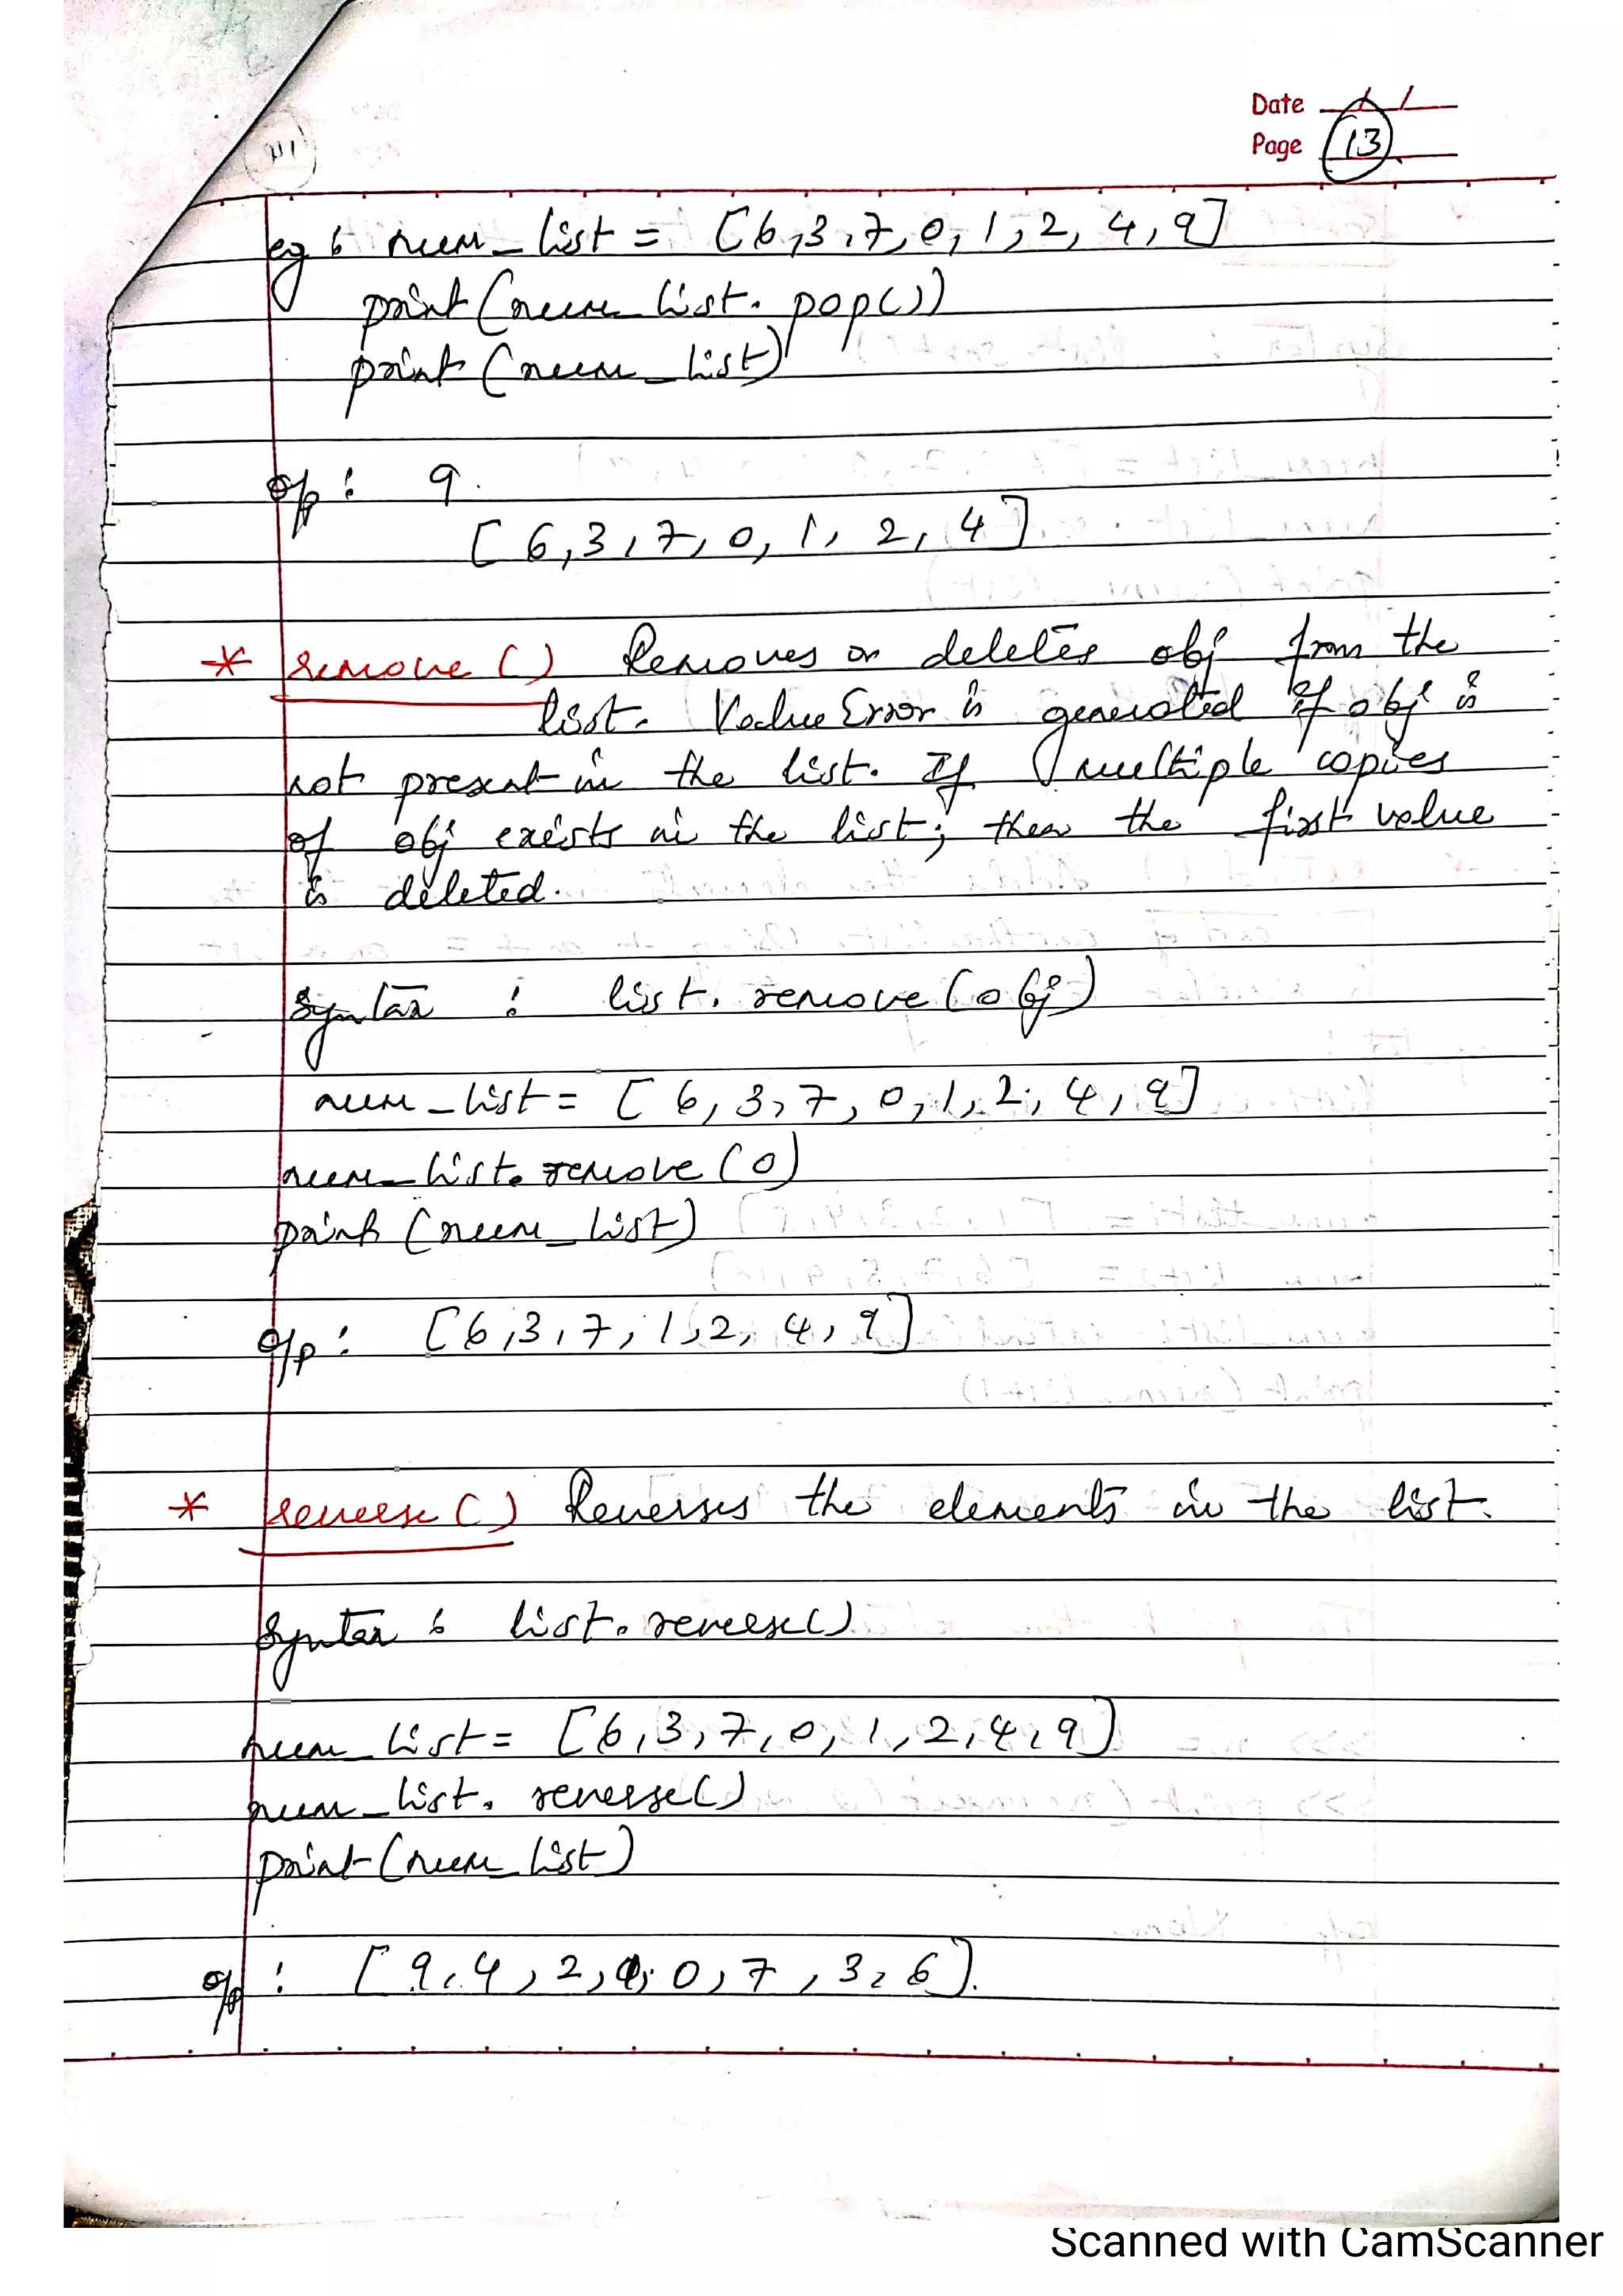 Date / /
Page 13
eg : num_list = [6,3,7,0,1,2,4,9]
print(num_list.pop())
print(num_list)
o/p : 9
[6,3,7,0,1,2,4]
* remove() Removes or deletes obj from the
list. ValueError is generated if obj is
not present in the list. If multiple copies
of obj exists in the list; then the first value
is deleted.
Syntax : list.remove(obj)
num_list = [6,3,7,0,1,2,4,9]
num_list.remove(0)
print(num_list)
o/p : [6,3,7,1,2,4,9]
* reverse() Reverses the elements in the list.
Syntax : list.reverse()
num_list = [6,3,7,0,1,2,4,9]
num_list.reverse()
print(num_list)
o/p : [9,4,2,1,0,7,3,6].
Scanned with CamScanner